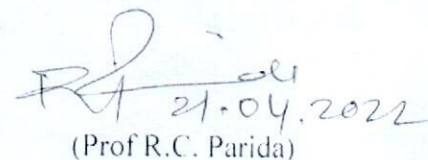 21.04.2022
(Prof R.C. Parida)